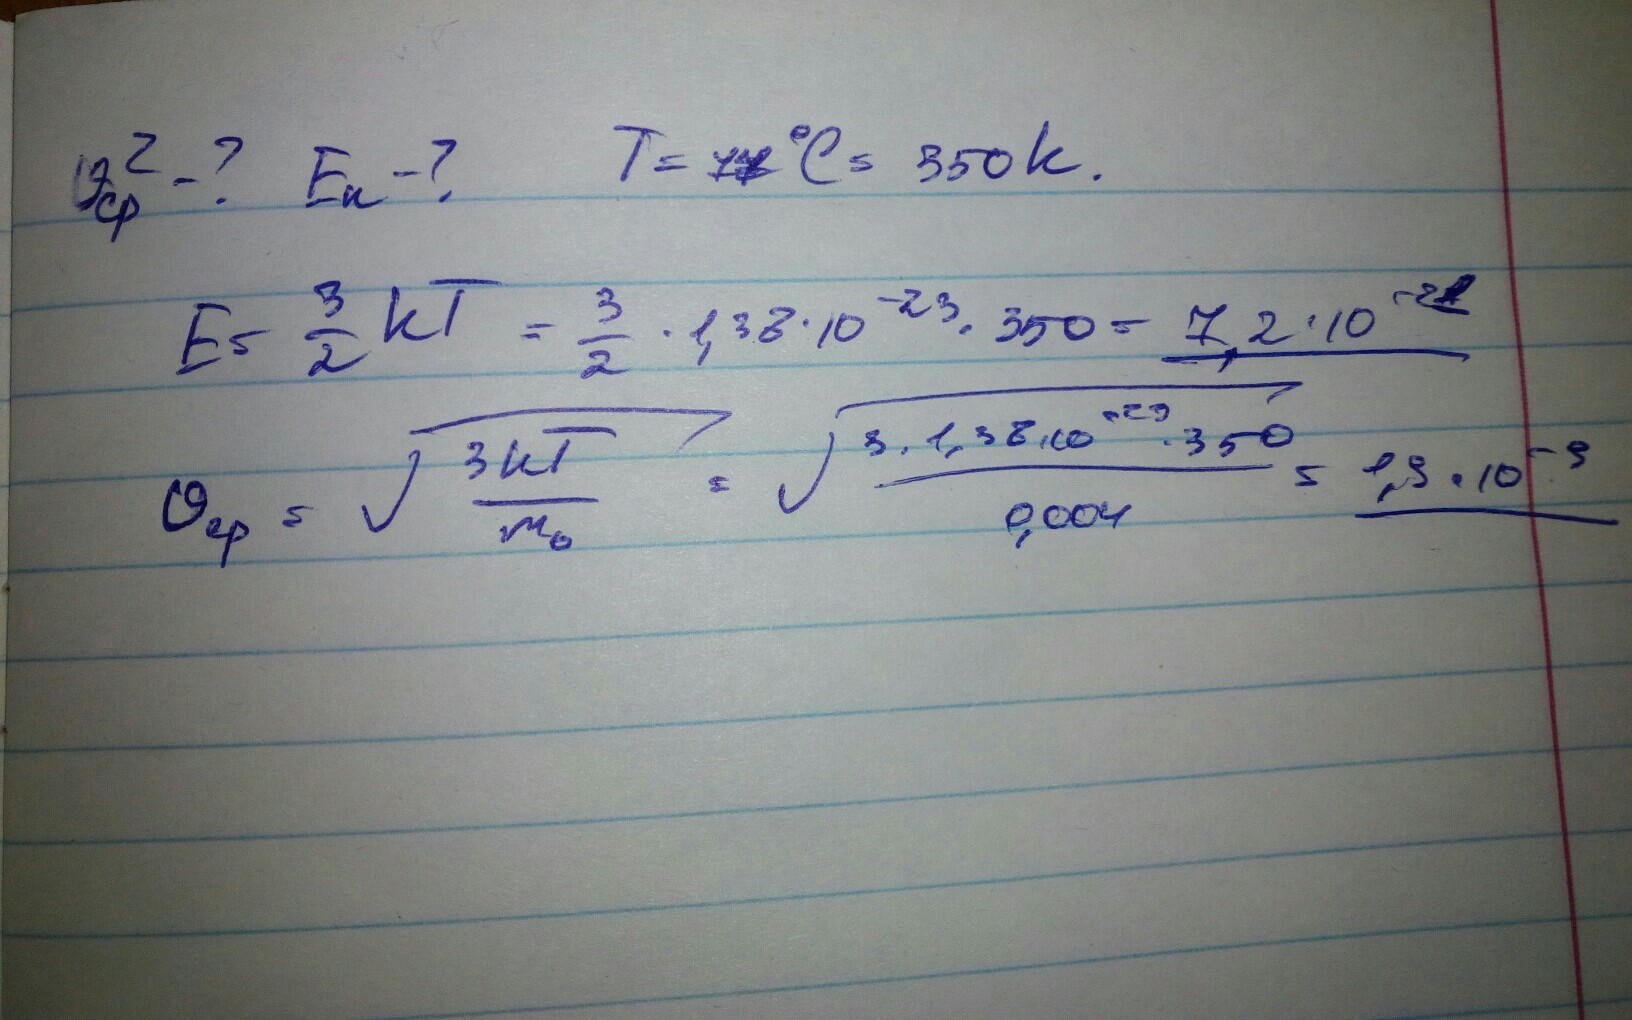 υ²ср - ? Eк - ? T = 77 °C = 350 K.
E = 3/2 kT = 3/2 · 1,38 · 10⁻²³ · 350 = 7,2 · 10⁻²¹
υср = √(3kT/m₀) = √(3 · 1,38 · 10⁻²³ · 350 / 0,004) = 1,9 · 10⁻⁹